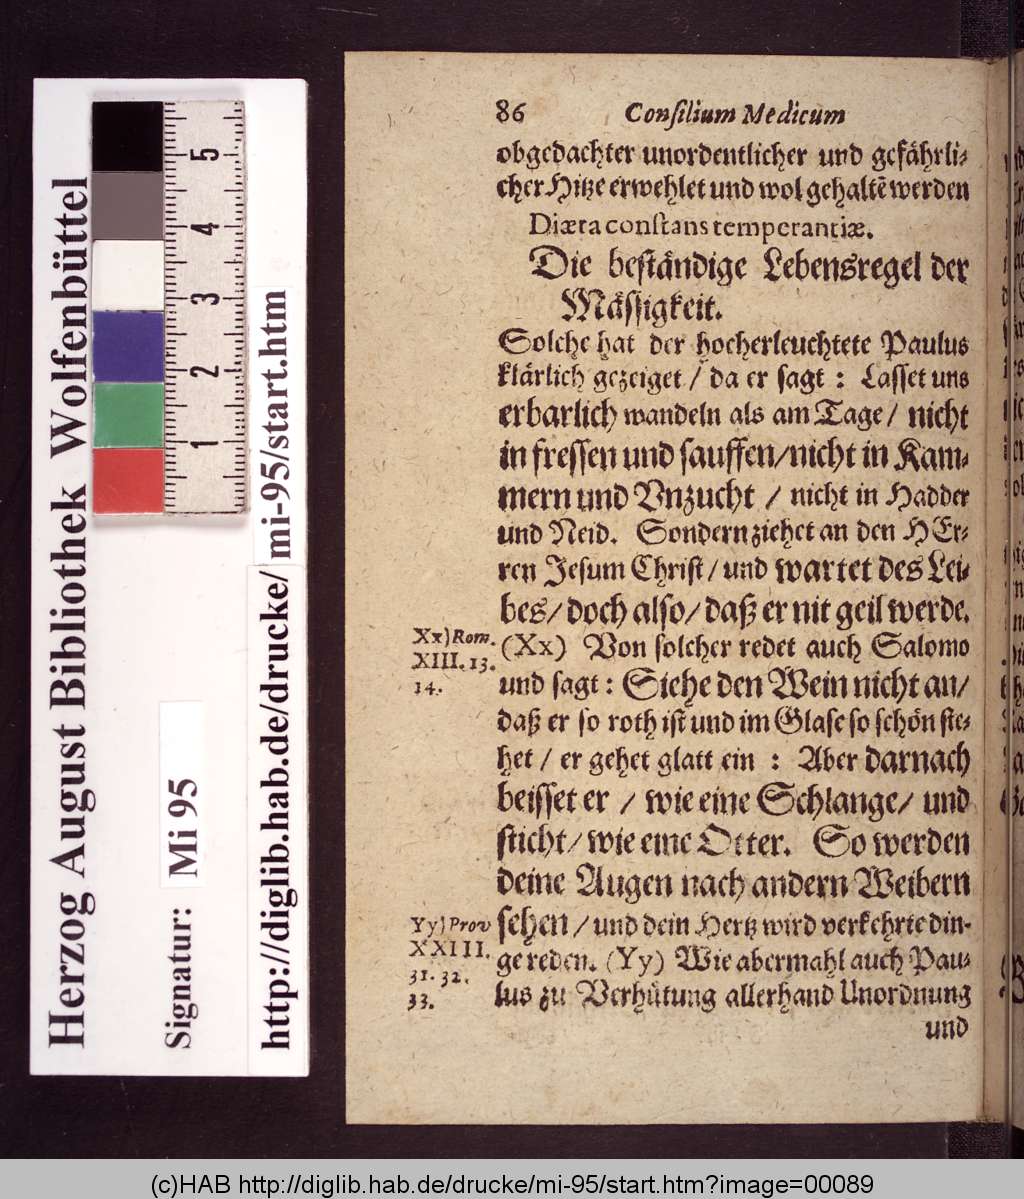 86 Consilium Medicum
obgedachter unordentlicher und gefährli⸗
cher Hitze erwehlet und wol gehaltē werden
Diæta constans temperantiæ.
Die beståndige Lebensregel der
Måssigkeit.
Solche hat der hocherleuchtete Paulus
klårlich gezeiget / da er sagt : Lasset uns
erbarlich wandeln als am Tage / nicht
in fressen und sauffen / nicht in Kam⸗
mern und Vnzucht / nicht in Hadder
und Neid. Sondern ziehet an den HEr⸗
ren Jesum Christ / und wartet des Lei⸗
bes / doch also / daß er nit geil werde.
Xx) Rom.
XIII. 13.
14.
(Xx) Von solcher redet auch Salomo
und sagt : Siehe den Wein nicht an /
daß er so roth ist und im Glase so schön ste⸗
het / er gehet glatt ein : Aber darnach
beisset er / wie eine Schlange / und
sticht / wie eine Otter. So werden
deine Augen nach andern Weibern
sehen / und dein Hertz wird verkehrte din⸗
Yy) Prov
XXIII.
31. 32.
33.
ge reden. (Yy) Wie abermahl auch Pau⸗
lus zu Verhütung allerhand Unordnung
und
Herzog August Bibliothek Wolfenbüttel
Signatur: Mi 95
http://diglib.hab.de/drucke/mi-95/start.htm
5
4
3
2
1
(c)HAB http://diglib.hab.de/drucke/mi-95/start.htm?image=00089